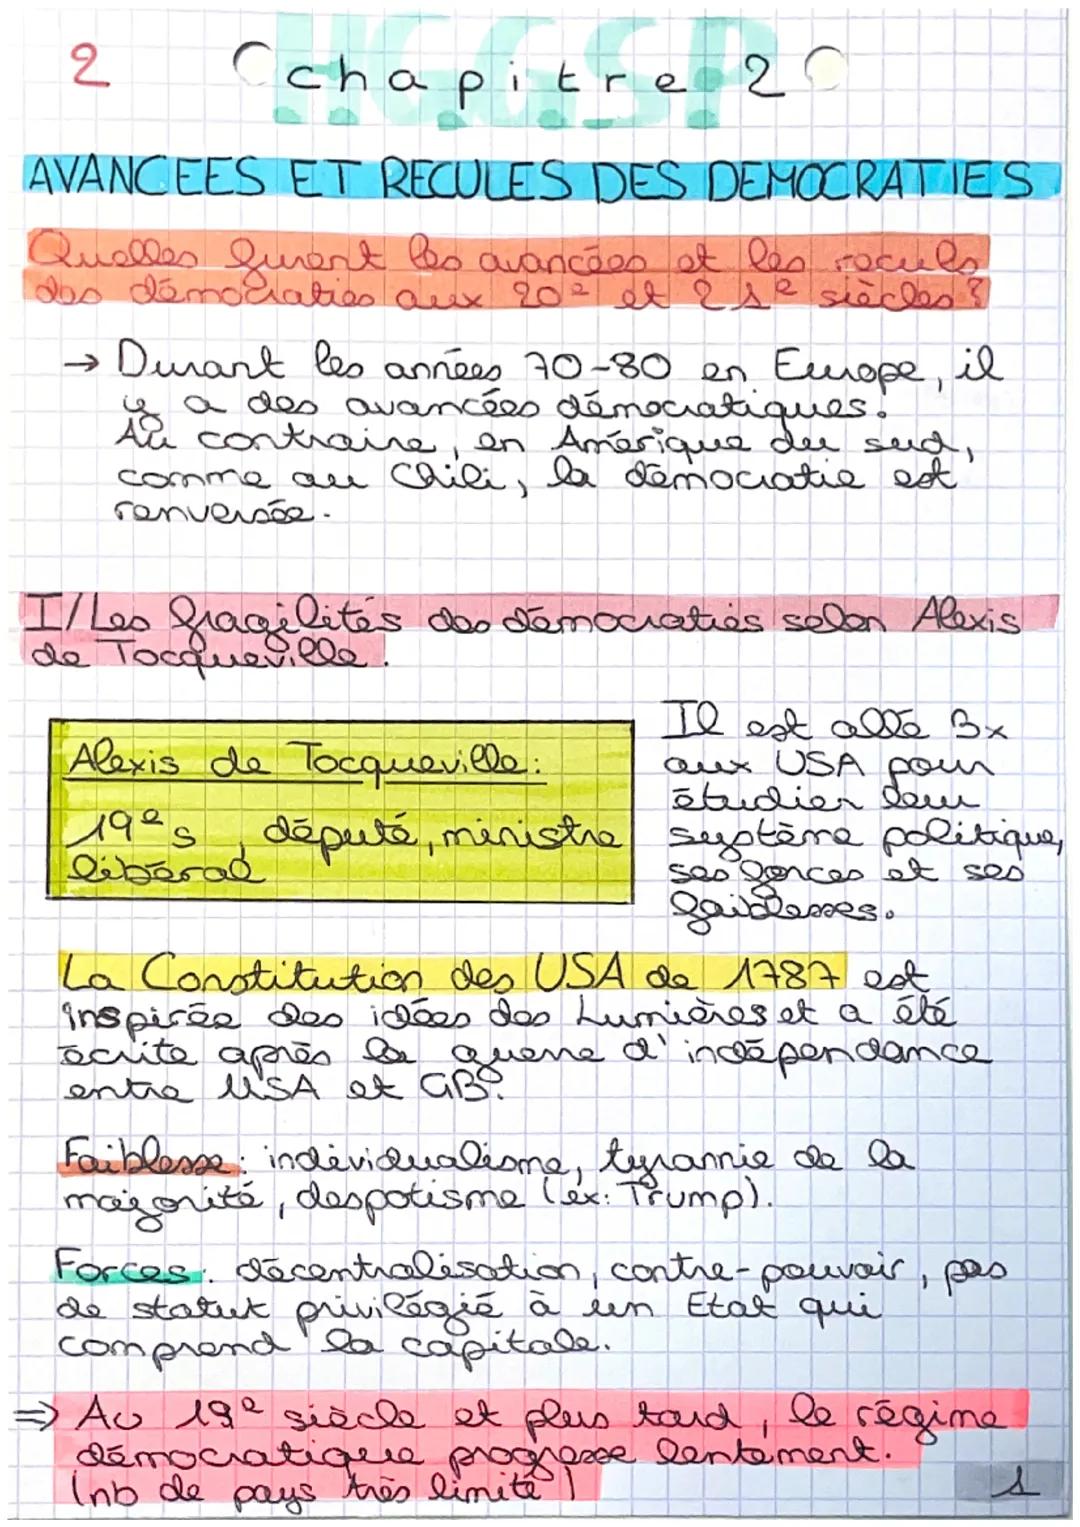 HGGSP
2
Chapitre 2
AVANCEES ET RECULES DES DEMOCRATIES
Quelles furent les avancées et les reculs
des démocraties aux 20e et 21e siècles ?
→ Durant les années 70-80 en Europe, il
y a des avancées démocratiques.
Au contraire, en Amérique du sud,
comme au Chili, la démocratie est
renversée.
I/ Les fragilités des démocraties selon Alexis
de Tocqueville.
Alexis de Tocqueville:
19e s, député, ministre
libéral
Il est allé 3x
aux USA pour
étudier leur
système politique,
ses forces et ses
faiblesses.
La Constitution des USA de 1787 est
inspirée des idées des Lumières et a été
écrite après la guerre d'indépendance
entre USA et GB.
Faiblesse: individualisme, tyrannie de la
majorité, despotisme (ex: Trump).
Forces: décentralisation, contre-pouvoir, pas
de statut privilégié à un Etat qui
comprend la capitale.
⇒ Au 19e siècle et plus tard, le régime
démocratique progresse lentement.
(nb de pays très limité)
1